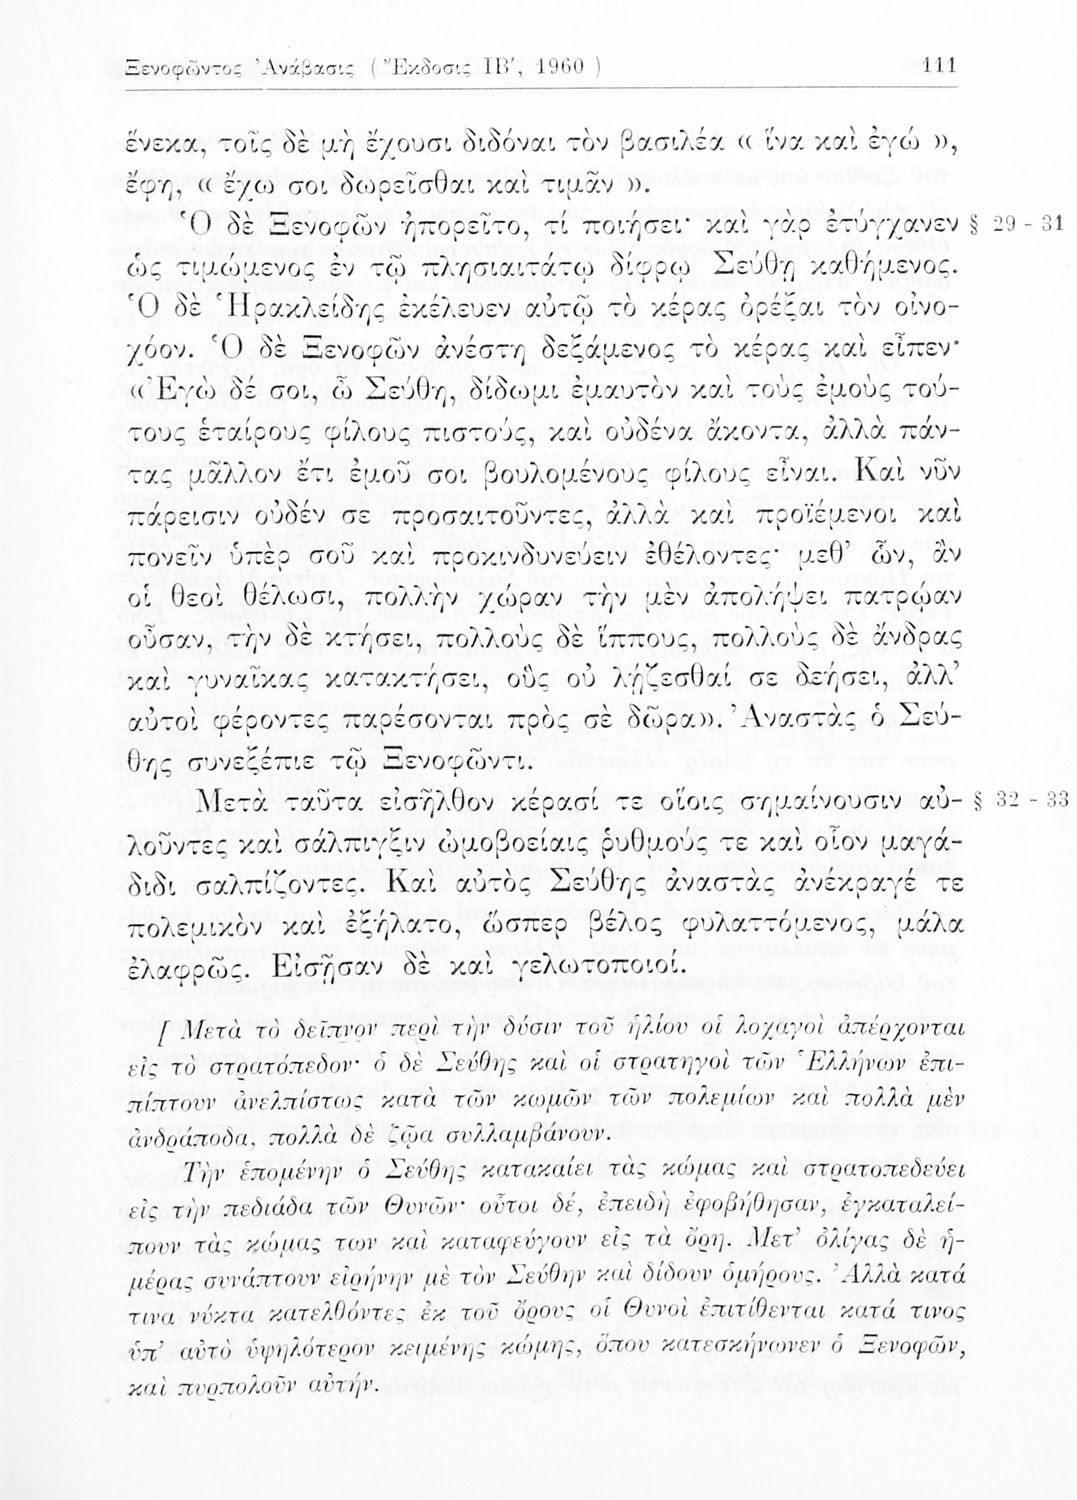 Ξενοφῶντος Ἀνάβασις ( Ἔκδοσις ΙΒ΄, 1960 ) 111
ἕνεκα, τοῖς δὲ μὴ ἔχουσι διδόναι τὸν βασιλέα « ἵνα καὶ ἐγώ »,
ἔφη, « ἔχω σοι δωρεῖσθαι καὶ τιμᾶν ».
Ὁ δὲ Ξενοφῶν ἠπορεῖτο, τί ποιήσει· καὶ γὰρ ἐτύγχανεν § 29 - 31
ὡς τιμώμενος ἐν τῷ πλησιαιτάτῳ δίφρῳ Σεύθῃ καθήμενος.
Ὁ δὲ Ἡρακλείδης ἐκέλευεν αὐτῷ τὸ κέρας ὀρέξαι τὸν οἰνο-
χόον. Ὁ δὲ Ξενοφῶν ἀνέστη δεξάμενος τὸ κέρας καὶ εἶπεν·
« Ἐγὼ δέ σοι, ὦ Σεύθη, δίδωμι ἐμαυτὸν καὶ τοὺς ἐμοὺς τού-
τους ἑταίρους φίλους πιστούς, καὶ οὐδένα ἄκοντα, ἀλλὰ πάν-
τας μᾶλλον ἔτι ἐμοῦ σοι βουλομένους φίλους εἶναι. Καὶ νῦν
πάρεισιν οὐδέν σε προσαιτοῦντες, ἀλλὰ καὶ προϊέμενοι καὶ
πονεῖν ὑπὲρ σοῦ καὶ προκινδυνεύειν ἐθέλοντες· μεθ’ ὧν, ἂν
οἱ θεοὶ θέλωσι, πολλὴν χώραν τὴν μὲν ἀπολήψει πατρῴαν
οὖσαν, τὴν δὲ κτήσει, πολλοὺς δὲ ἵππους, πολλοὺς δὲ ἄνδρας
καὶ γυναῖκας κατακτήσει, οὓς οὐ λῄζεσθαί σε δεήσει, ἀλλ’
αὐτοὶ φέροντες παρέσονται πρὸς σὲ δῶρα». Ἀναστὰς ὁ Σεύ-
θης συνεξέπιε τῷ Ξενοφῶντι.
Μετὰ ταῦτα εἰσῆλθον κέρασί τε οἵοις σημαίνουσιν αὐ- § 32 - 33
λοῦντες καὶ σάλπιγξιν ὠμοβοείαις ῥυθμούς τε καὶ οἷον μαγά-
διδι σαλπίζοντες. Καὶ αὐτὸς Σεύθης ἀναστὰς ἀνέκραγέ τε
πολεμικὸν καὶ ἐξήλατο, ὥσπερ βέλος φυλαττόμενος, μάλα
ἐλαφρῶς. Εἰσῇσαν δὲ καὶ γελωτοποιοί.
[ Μετὰ τὸ δεῖπνον περὶ τὴν δύσιν τοῦ ἡλίου οἱ λοχαγοὶ ἀπέρχονται
εἰς τὸ στρατόπεδον· ὁ δὲ Σεύθης καὶ οἱ στρατηγοὶ τῶν Ἑλλήνων ἐπι-
πίπτουν ἀνελπίστως κατὰ τῶν κωμῶν τῶν πολεμίων καὶ πολλὰ μὲν
ἀνδράποδα, πολλὰ δὲ ζῷα συλλαμβάνουν.
Τὴν ἑπομένην ὁ Σεύθης κατακαίει τὰς κώμας καὶ στρατοπεδεύει
εἰς τὴν πεδιάδα τῶν Θυνῶν· οὗτοι δέ, ἐπειδὴ ἐφοβήθησαν, ἐγκαταλεί-
πουν τὰς κώμας των καὶ καταφεύγουν εἰς τὰ ὄρη. Μετ’ ὀλίγας δὲ ἡ-
μέρας συνάπτουν εἰρήνην μὲ τὸν Σεύθην καὶ δίδουν ὁμήρους. Ἀλλὰ κατά
τινα νύκτα κατελθόντες ἐκ τοῦ ὄρους οἱ Θυνοὶ ἐπιτίθενται κατά τινος
ὑπ’ αὐτὸ ὑψηλότερον κειμένης κώμης, ὅπου κατεσκήνωνεν ὁ Ξενοφῶν,
καὶ πυρπολοῦν αὐτήν.